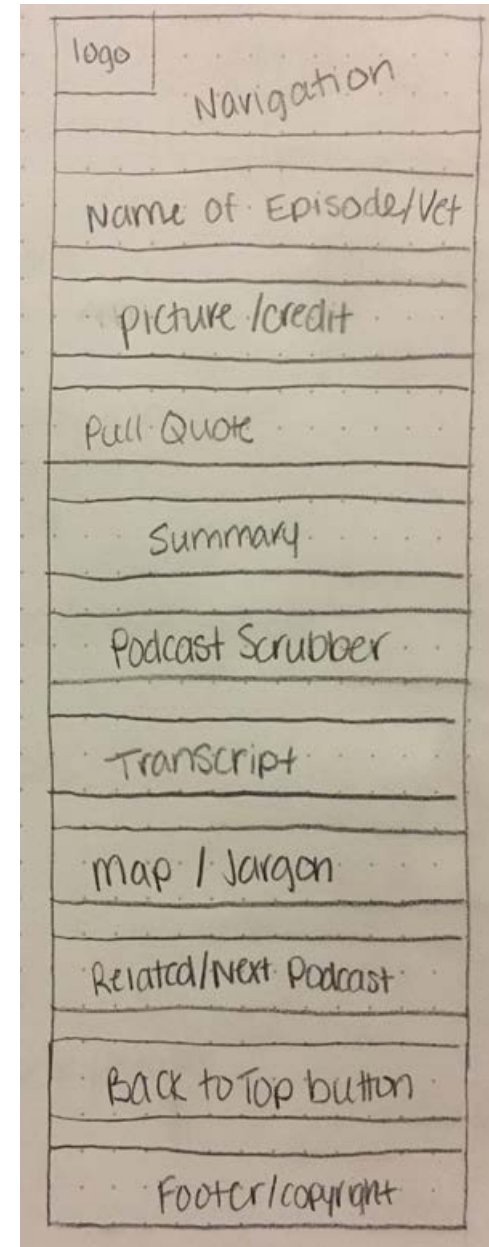 logo
Navigation
Name of Episode/Vet
picture/credit
Pull Quote
Summary
Podcast Scrubber
Transcript
Map / Jargon
Related/Next Podcast
Back to Top button
Footer/copyright